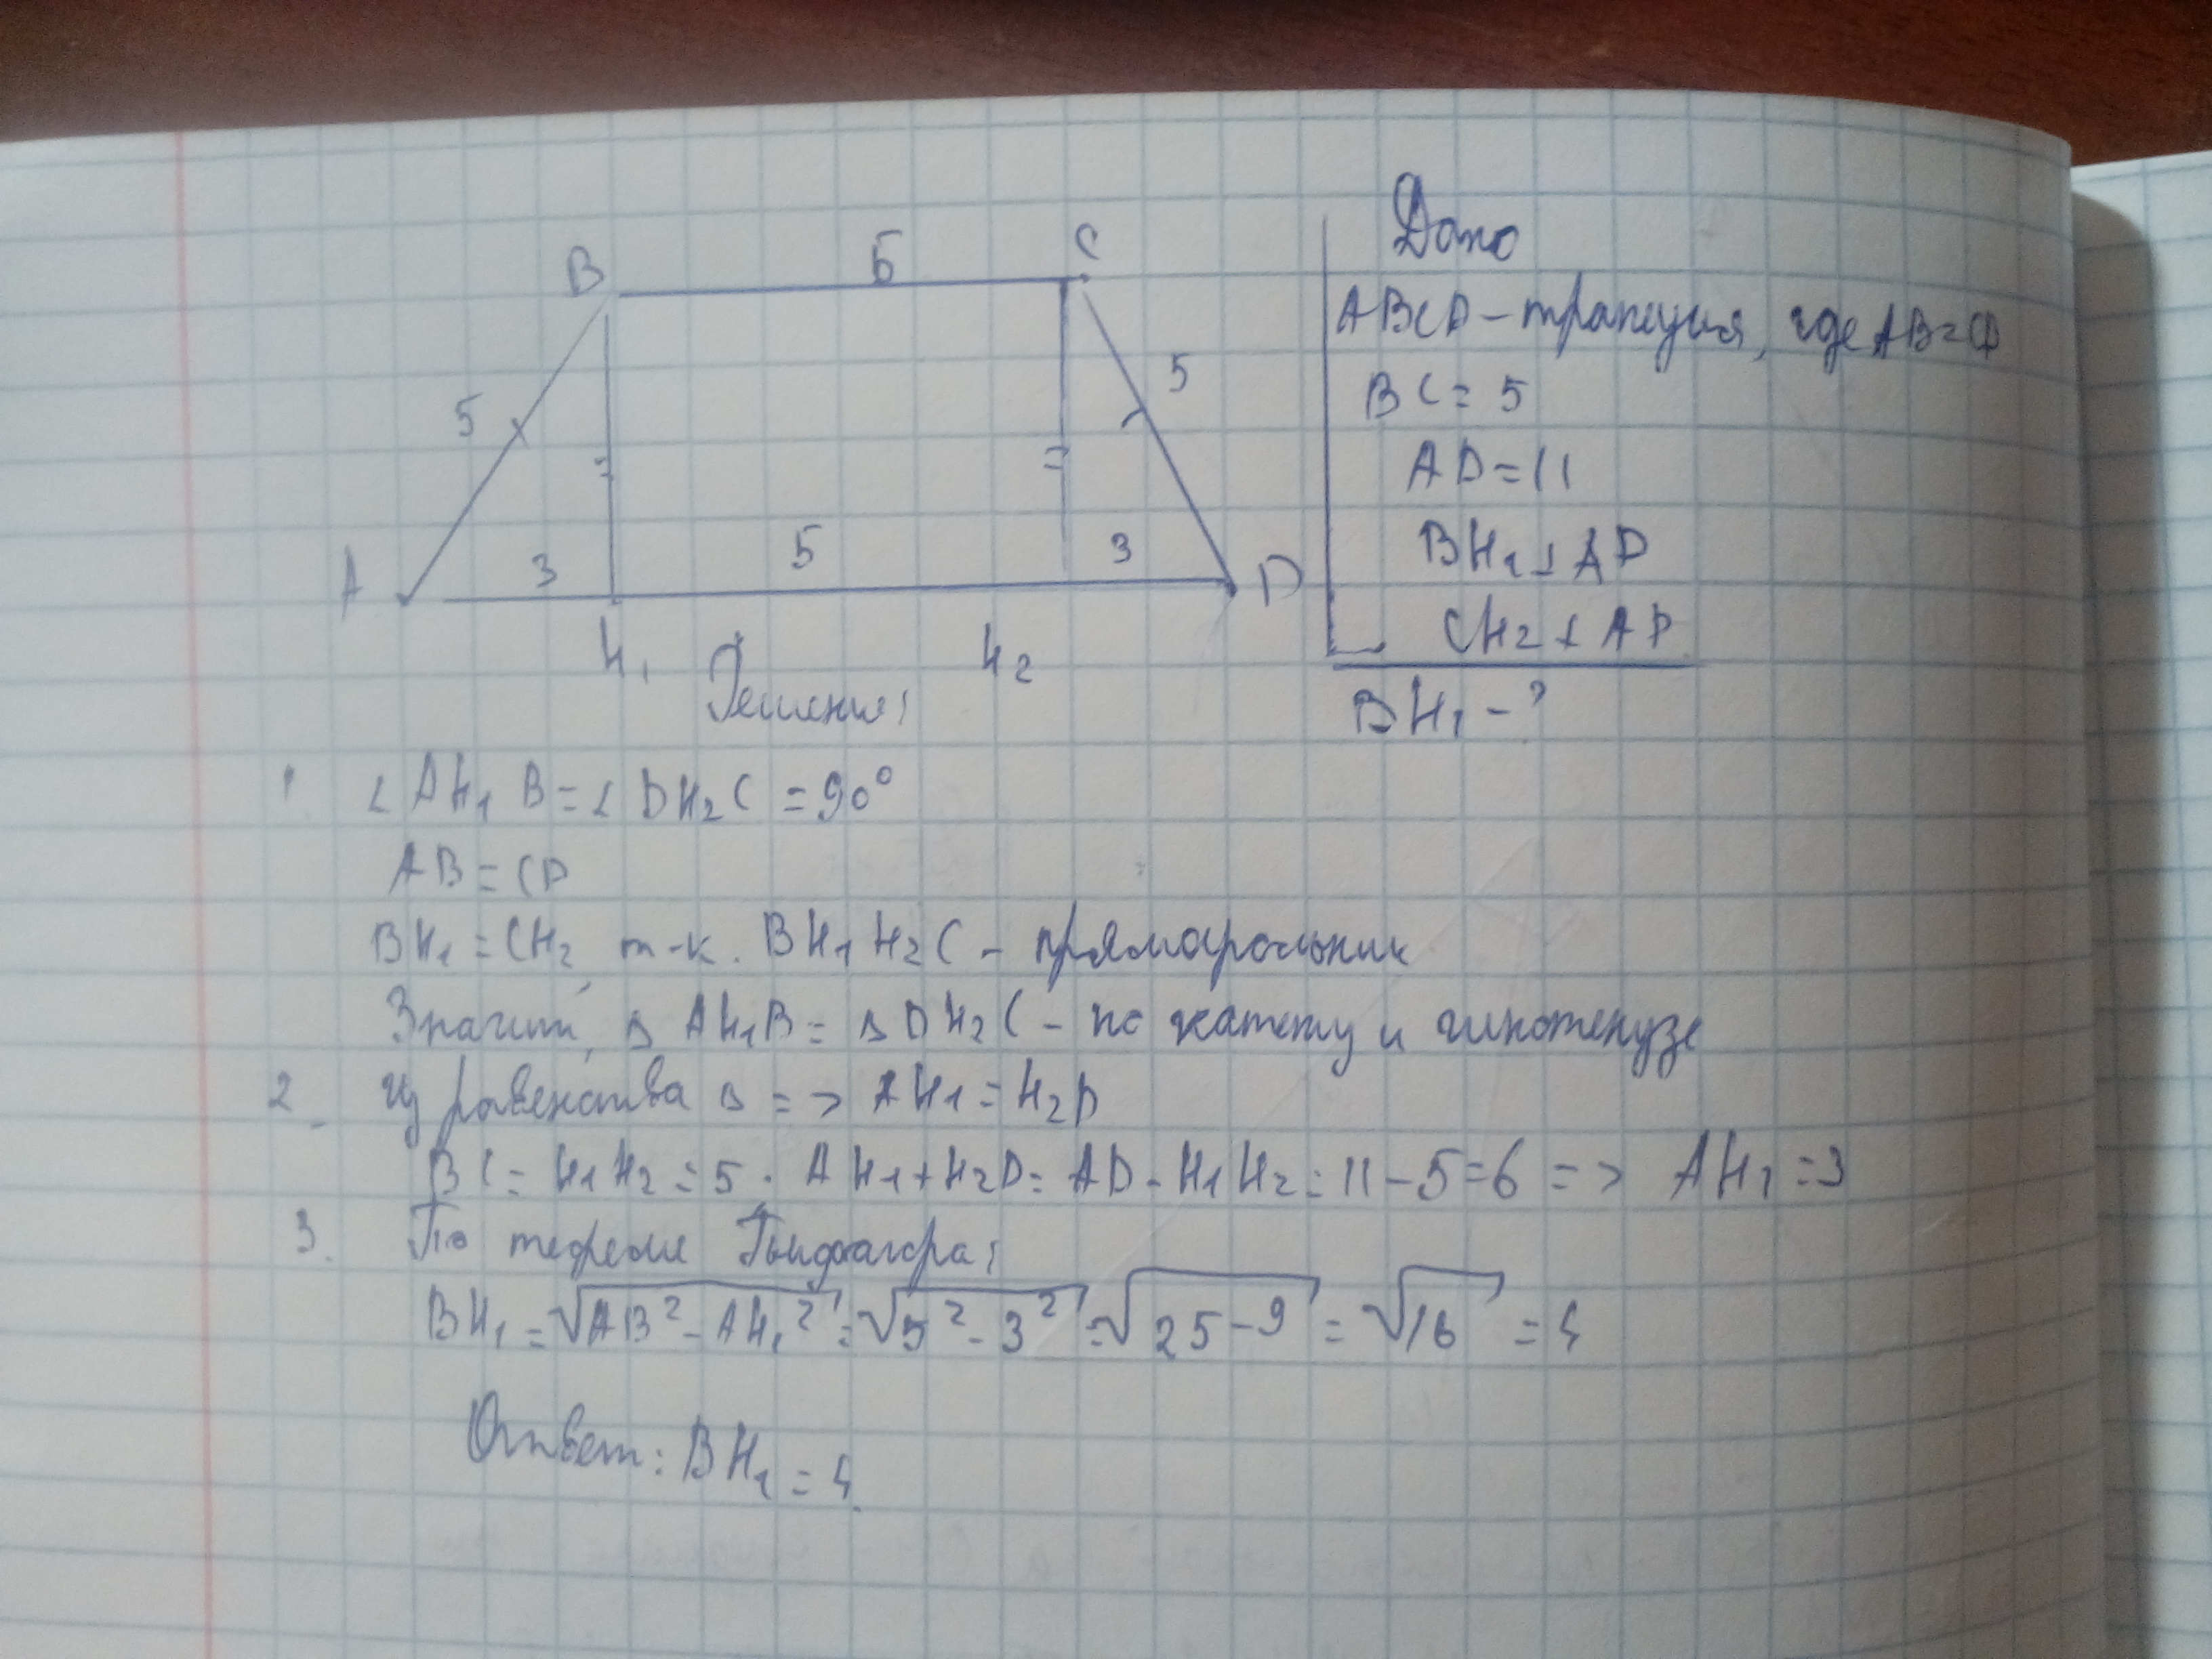 B 5 C
5
5
3 5 3
A D
H₁ H₂
Дано
ABCD - трапеция, где AB = CD
BC = 5
AD = 11
BH₁ ⊥ AD
CH₂ ⊥ AD
BH₁ - ?
Решение:
1. ∠ AH₁B = ∠ DH₂C = 90°
AB = CD
BH₁ = CH₂, т-к. BH₁H₂C - прямоугольник
Значит, Δ AH₁B = Δ DH₂C - по катету и гипотенузе
2. Из равенства Δ => AH₁ = H₂D
BC = H₁H₂ = 5. AH₁ + H₂D = AD - H₁H₂ = 11 - 5 = 6 => AH₁ = 3
3. По теореме Пифагора:
BH₁ = √AB² - AH₁² = √5² - 3² = √25 - 9 = √16 = 4
Ответ: BH₁ = 4.